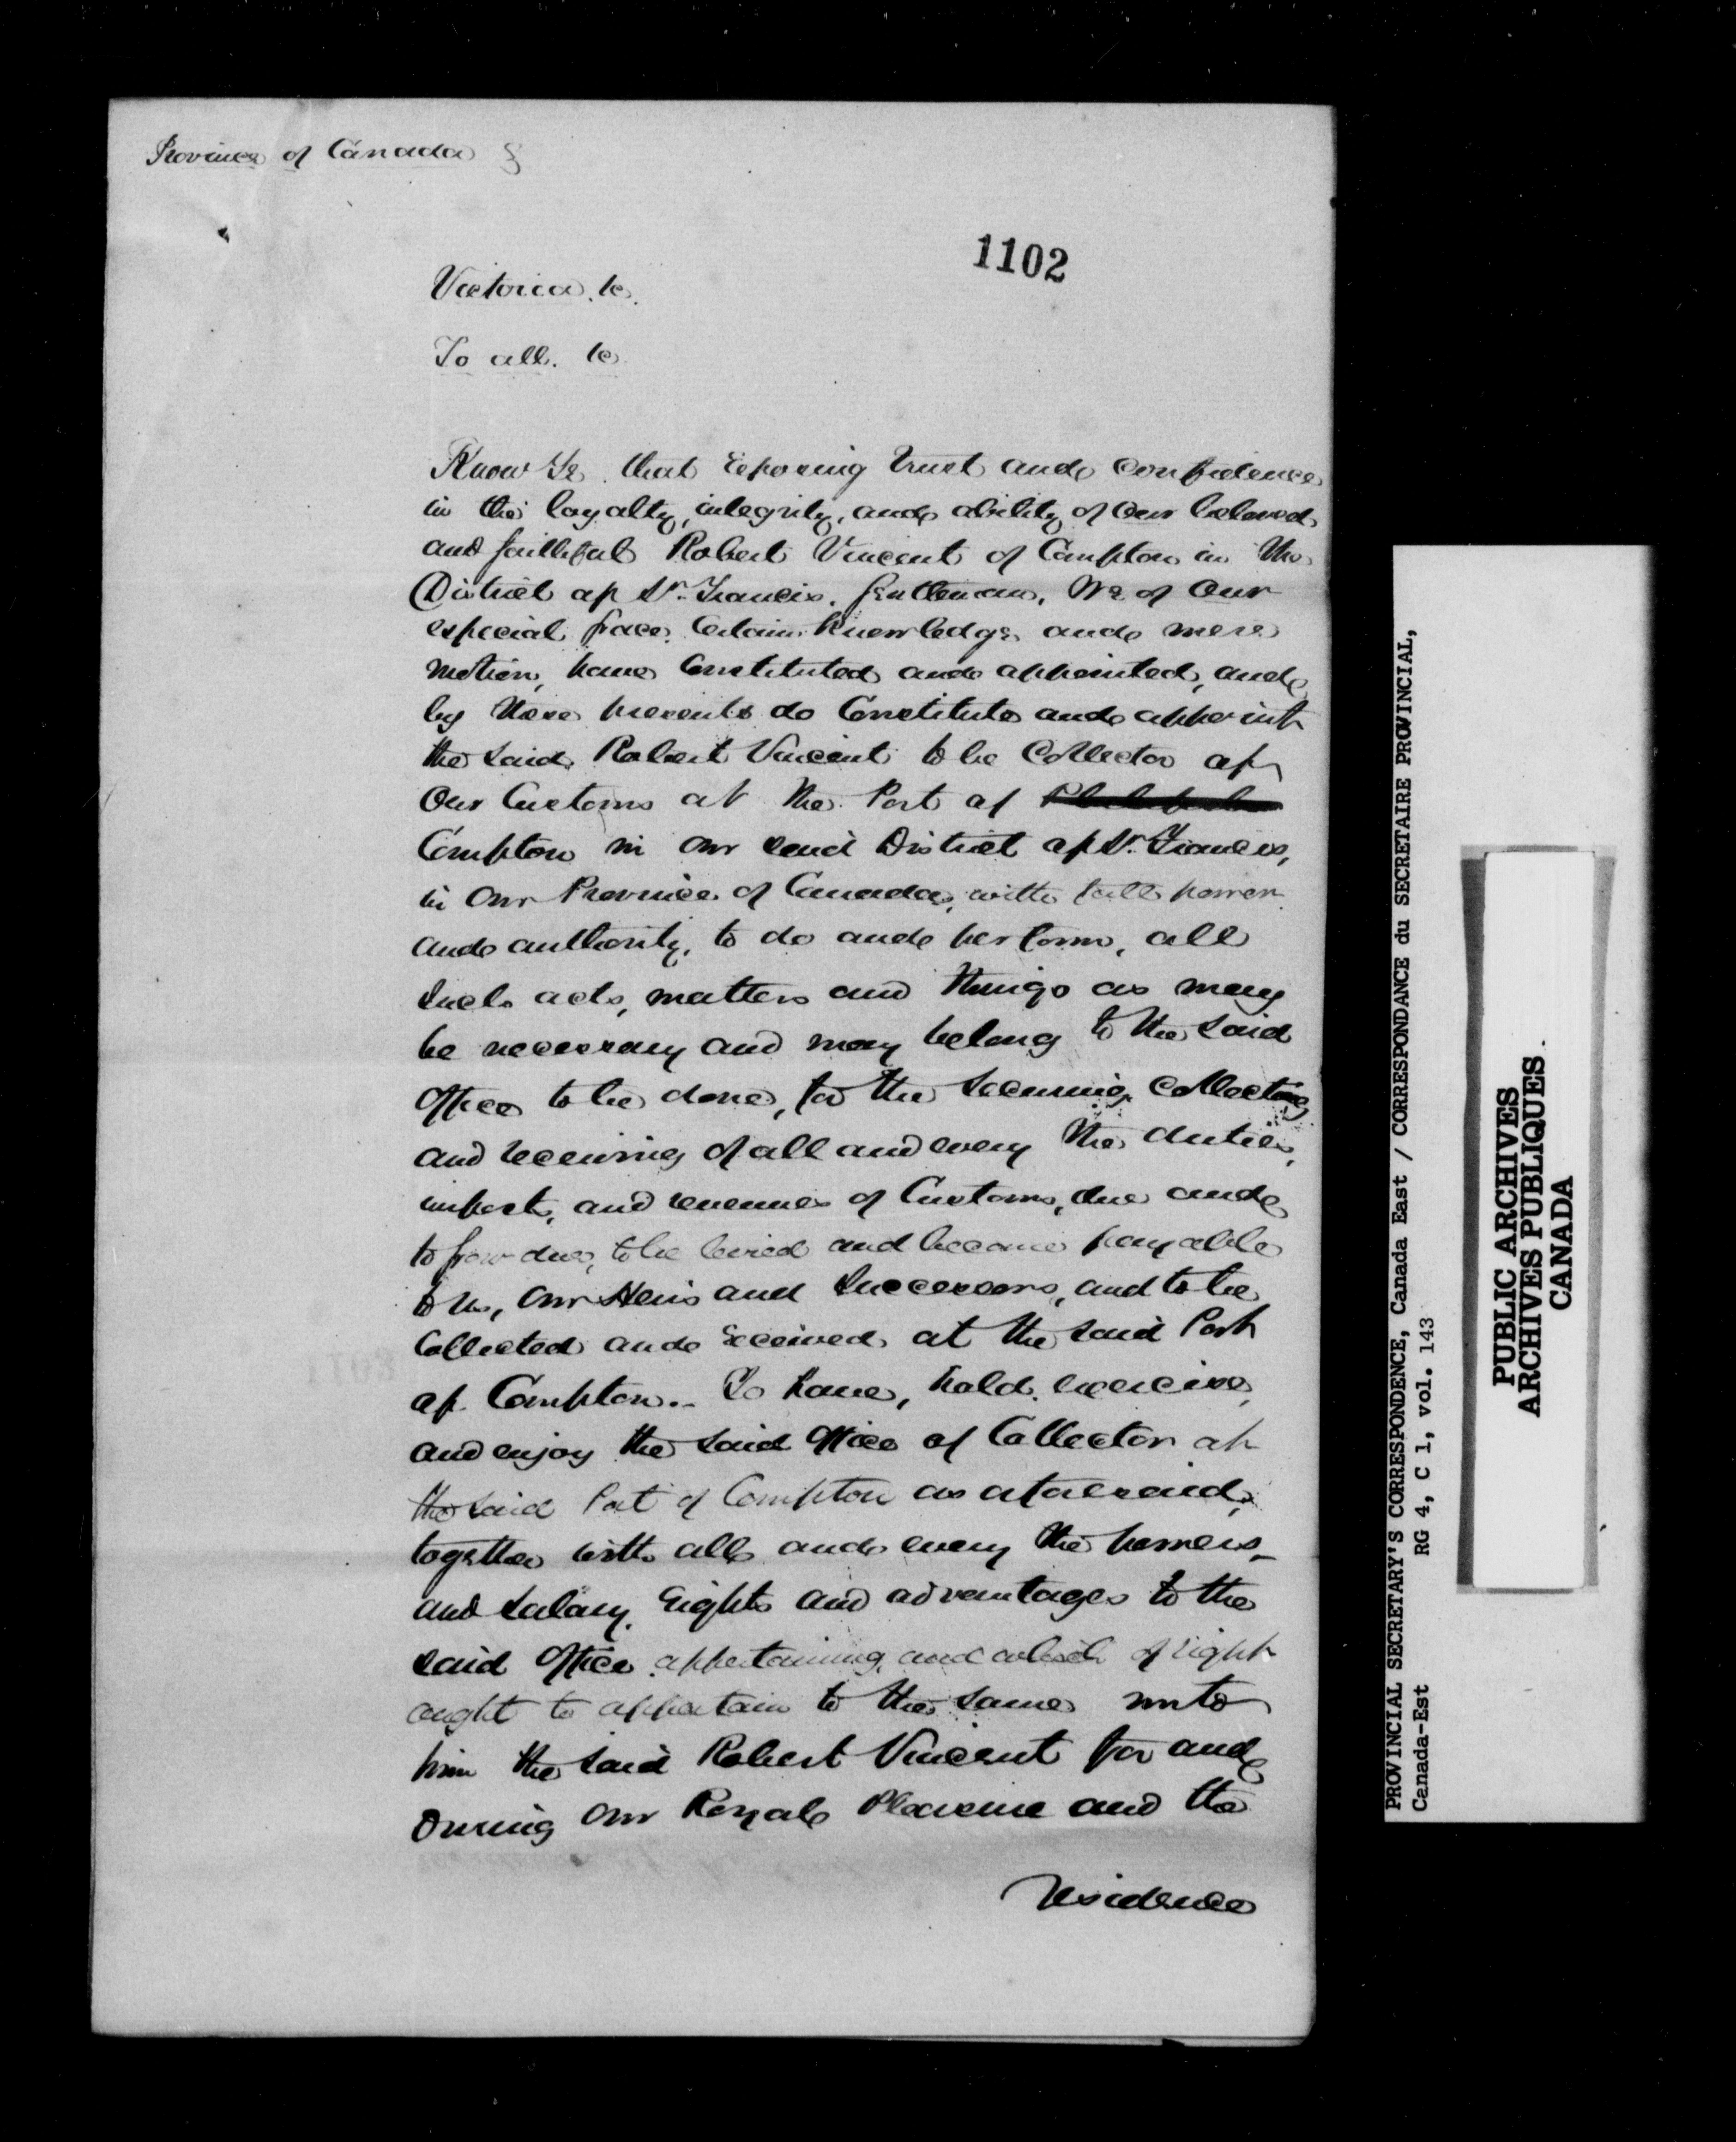 Province of Canada
1102
Victoria. &c.
To all. &c
Know Ye that reposing trust and confidence
in the loyalty, integrity, and ability of Our beloved
and faithful Robert Vincent of Compton in the
District of St. Francis, Gentleman, We of Our
especial grace, certain knowledge and mere
motion, have Constituted and appointed, and
by these presents do Constitute and appoint
the said Robert Vincent to be Collector of
Our Customs at the Port of
Compton in our said District of St. Francis,
in Our Province of Canada, with full power
and authority, to do and perform, all
such acts, matters and things as may
be necessary and may belong to the said
Office to be done, for the securing, collecting
and receiving of all and every the duties,
impost, and revenues of Customs, due and
to grow due, to be levied and become payable
to us, our Heirs and Successors, and to be
Collected and received at the said Port
of Compton.- To have, hold, exercise,
and enjoy the said Office of Collector at
the said Port of Compton as aforesaid,
together with all and every the powers,
and salary, rights and advantages to the
said Office appertaining, and which of right
ought to appertain to the same unto
him the said Robert Vincent for and
During our Royal Pleasure and the
residence
PROVINCIAL SECRETARY'S CORRESPONDENCE, Canada East / CORRESPONDANCE du SECRETAIRE PROVINCIAL,
Canada-Est RG 4, C 1, vol. 143
PUBLIC ARCHIVES
ARCHIVES PUBLIQUES
CANADA